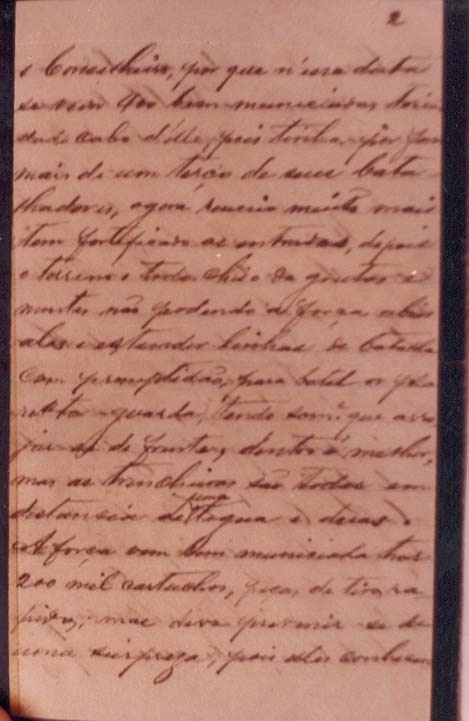 2
o Conselheiro, por que n'essa data
se viesse 400 bem municiados teria
dado cabo d'elle, pois tinha por fora
mais de um terço de seus bata
lhadores, agora reunio muito mais
tem fortificado as entradas, depois
o terreno e todo cheio de grutas e
montes não podendo a força abrir
alas e estender linhas de batalha
com promptidão, para batel o pela
retta-guarda, tendo som.e que arro
jar-se de frente, dentro é melhor,
mas as trincheiras são todas em
distancia de uma legua e duas.
A força vem bem municiada traz
200 mil cartuchos, peças de tiro ra
pido, mas deve prevenir-se de
uma surpreza, pois eles conhecem